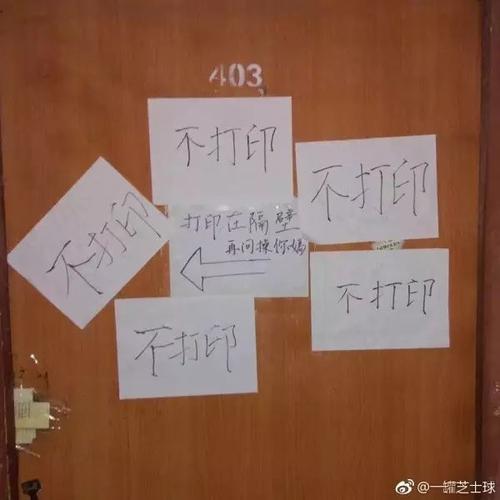 403
不打印
不打印
不打印
打印在隔壁
再问操你妈
不打印
不打印
@一罐芝士球